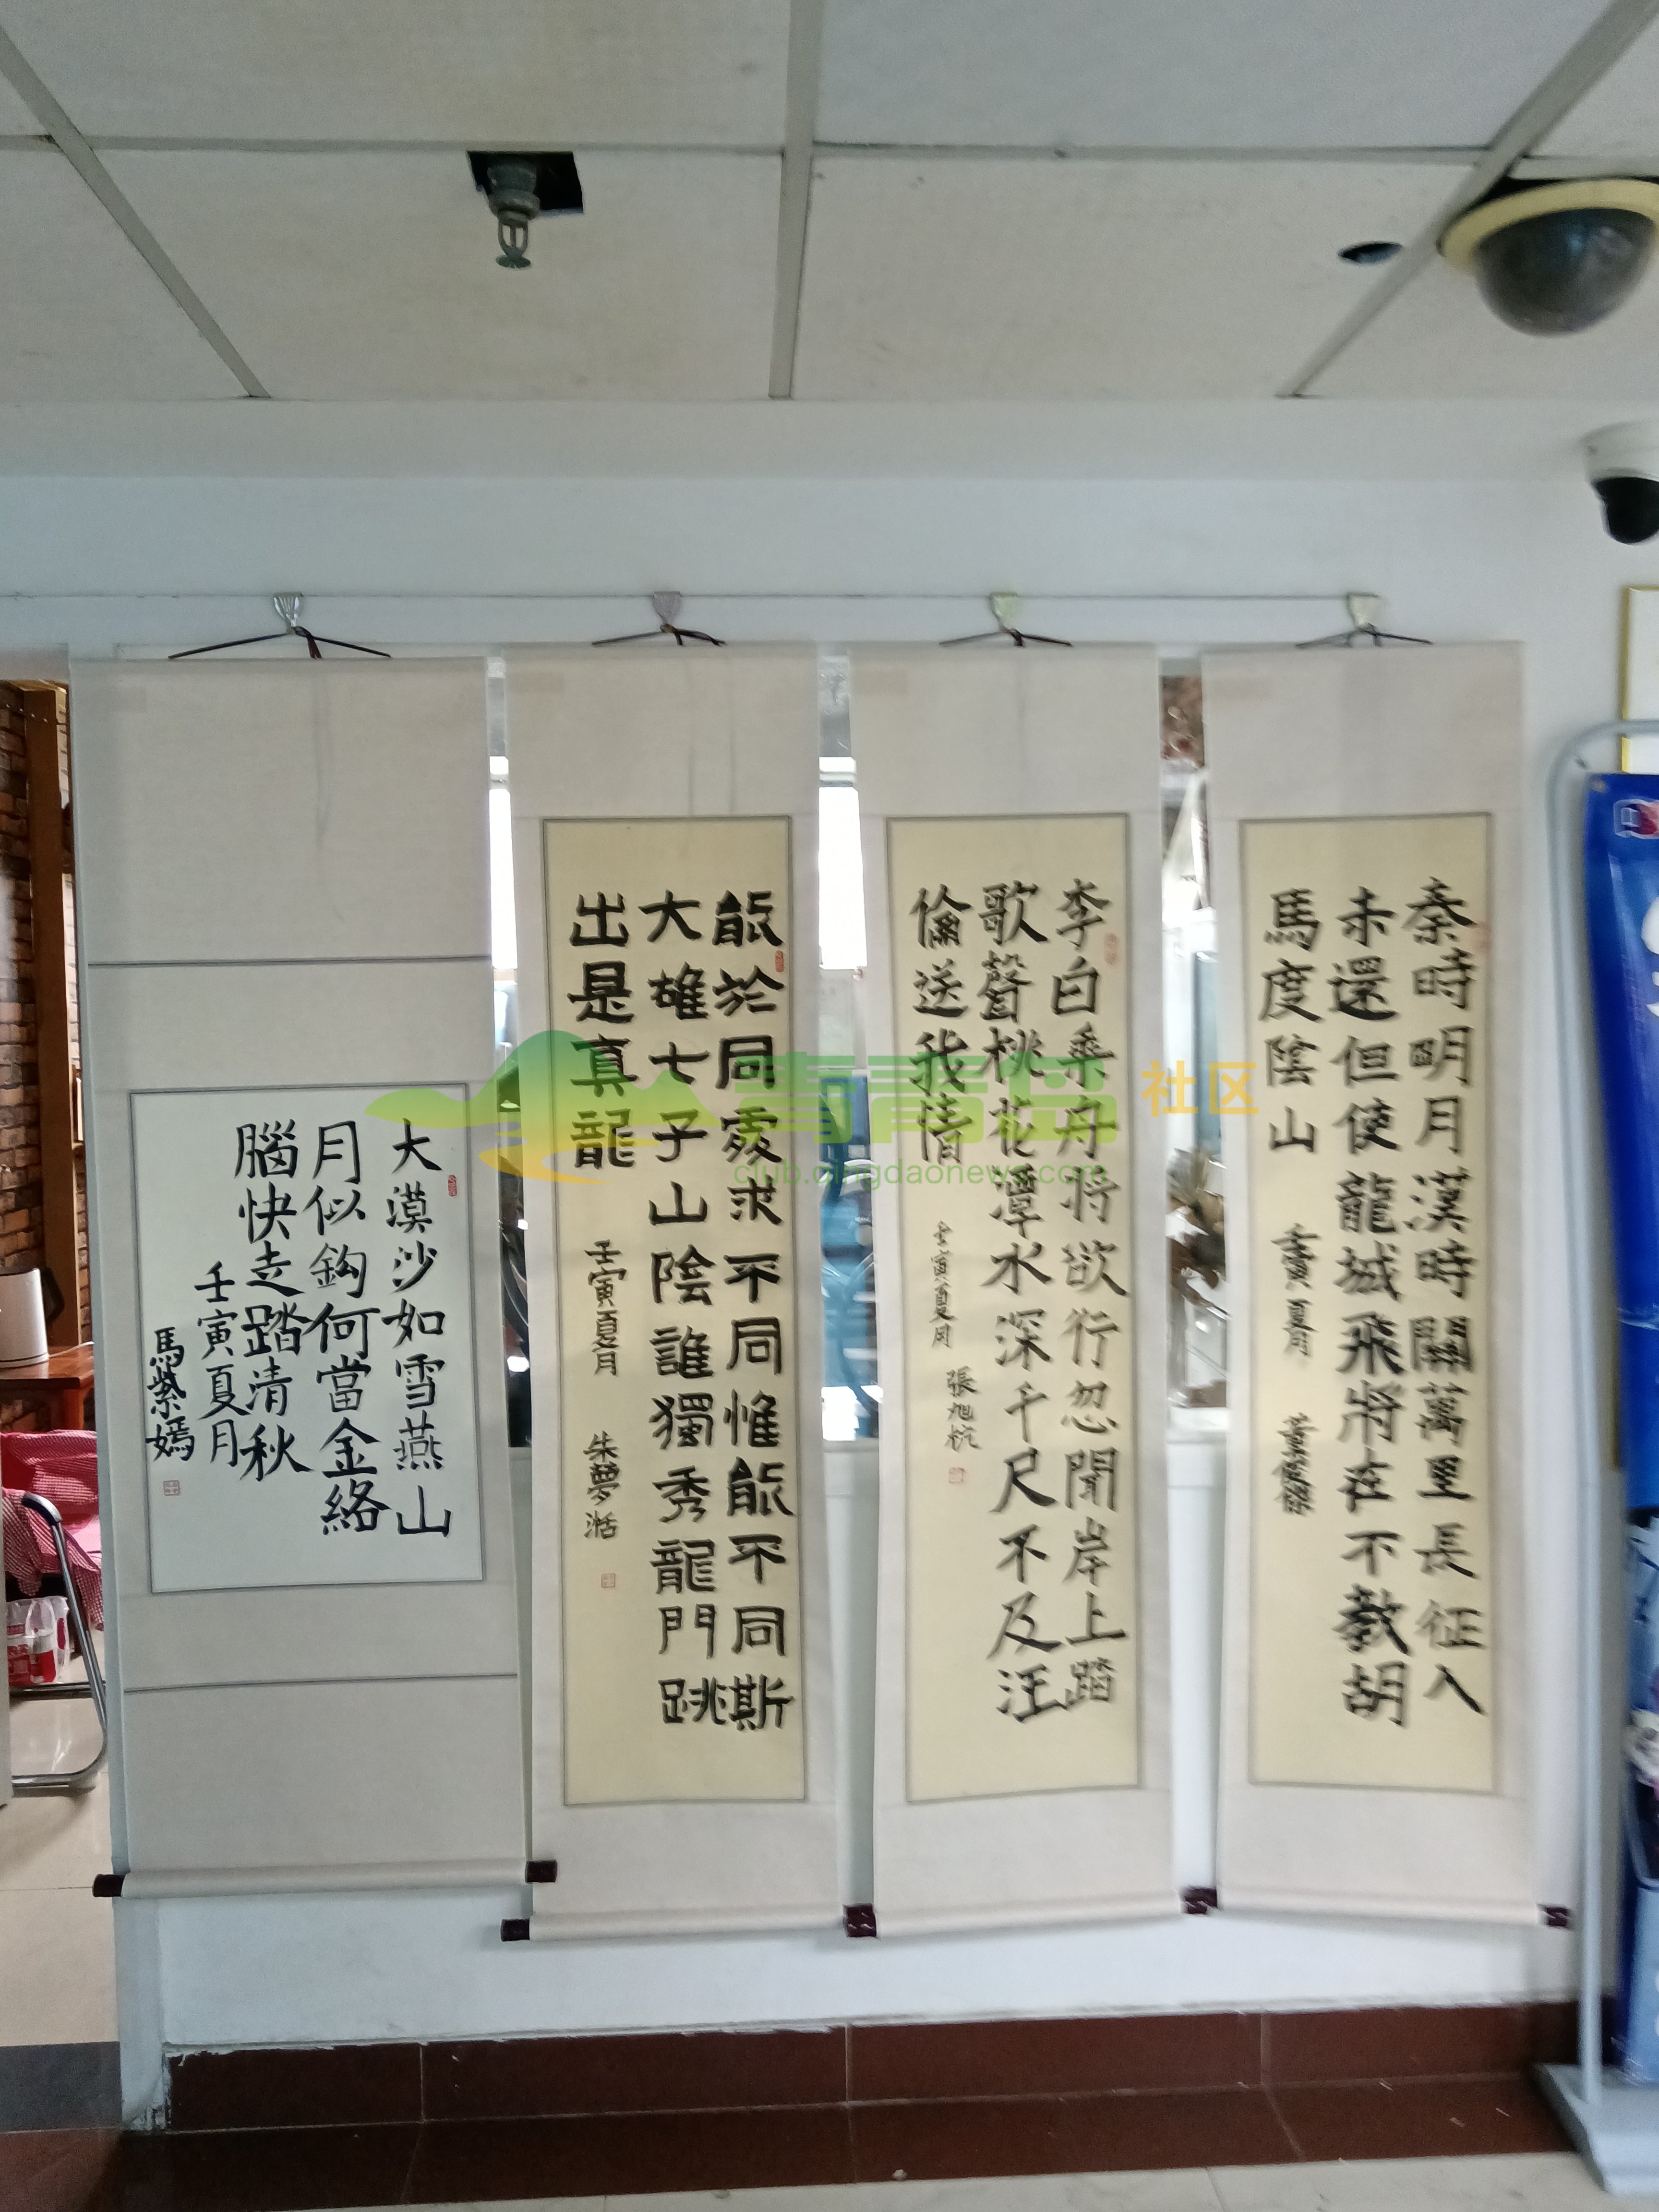 秦時明月漢時關萬里長征人
未還但使龍城飛將在不教胡
馬度陰山 壬寅夏月
李白乘舟将欲行忽聞岸上踏
歌聲桃花潭水深千尺不及汪
倫送我情 壬寅夏月 張旭杭
能於同處求不同惟能不同斯
大雄七子山陰誰獨秀龍門跳
出是真龍 壬寅夏月 朱夢湉
大漠沙如雪燕山
月似鈎何當金絡
腦快走踏清秋
壬寅夏月
馬紫嫣
青青岛社区
club.qingdaonews.com